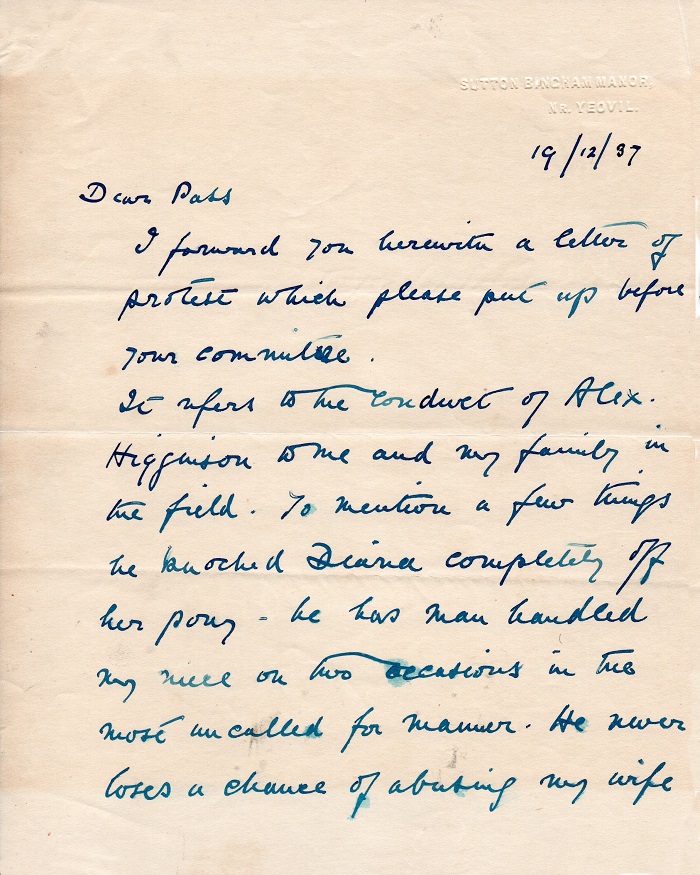 SUTTON BINGHAM MANOR,
NR. YEOVIL.
19/12/37
Dear Pass
I forward you herewith a letter of
protest which please put up before
your committee.
It refers to the conduct of Alex.
Higginson to me and my family in
the field. To mention a few things
he knocked Diana completely off
her pony - he has man handled
my niece on two occasions in the
most uncalled for manner. He never
loses a chance of abusing my wife